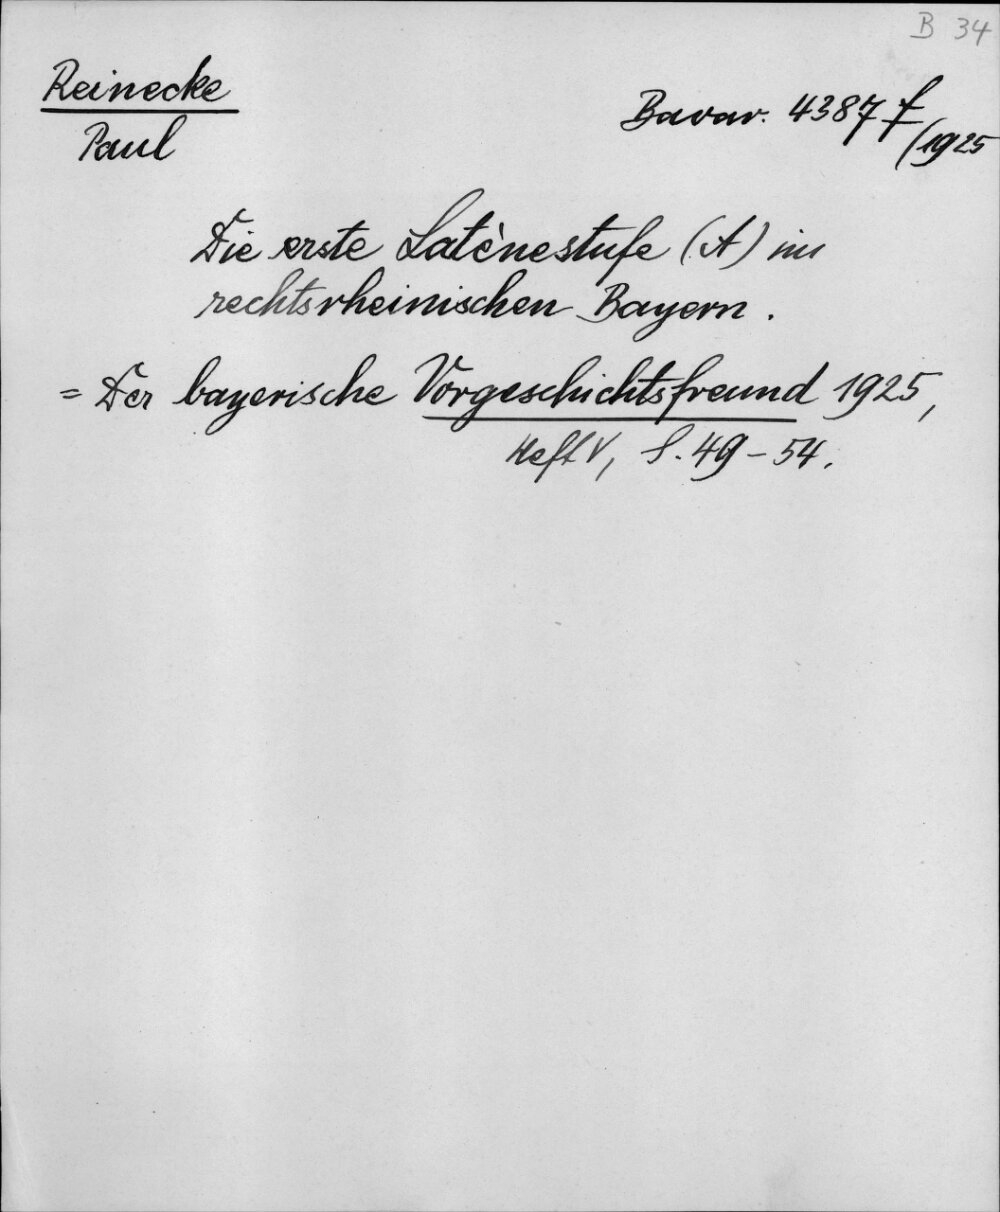 B 34
Reinecke
Paul
Bavar. 4387 f
/1925
Die erste Latènestufe (A) im
rechtsrheinischen Bayern.
= Der bayerische Vorgeschichtsfreund 1925,
Heft V, S. 49-54.